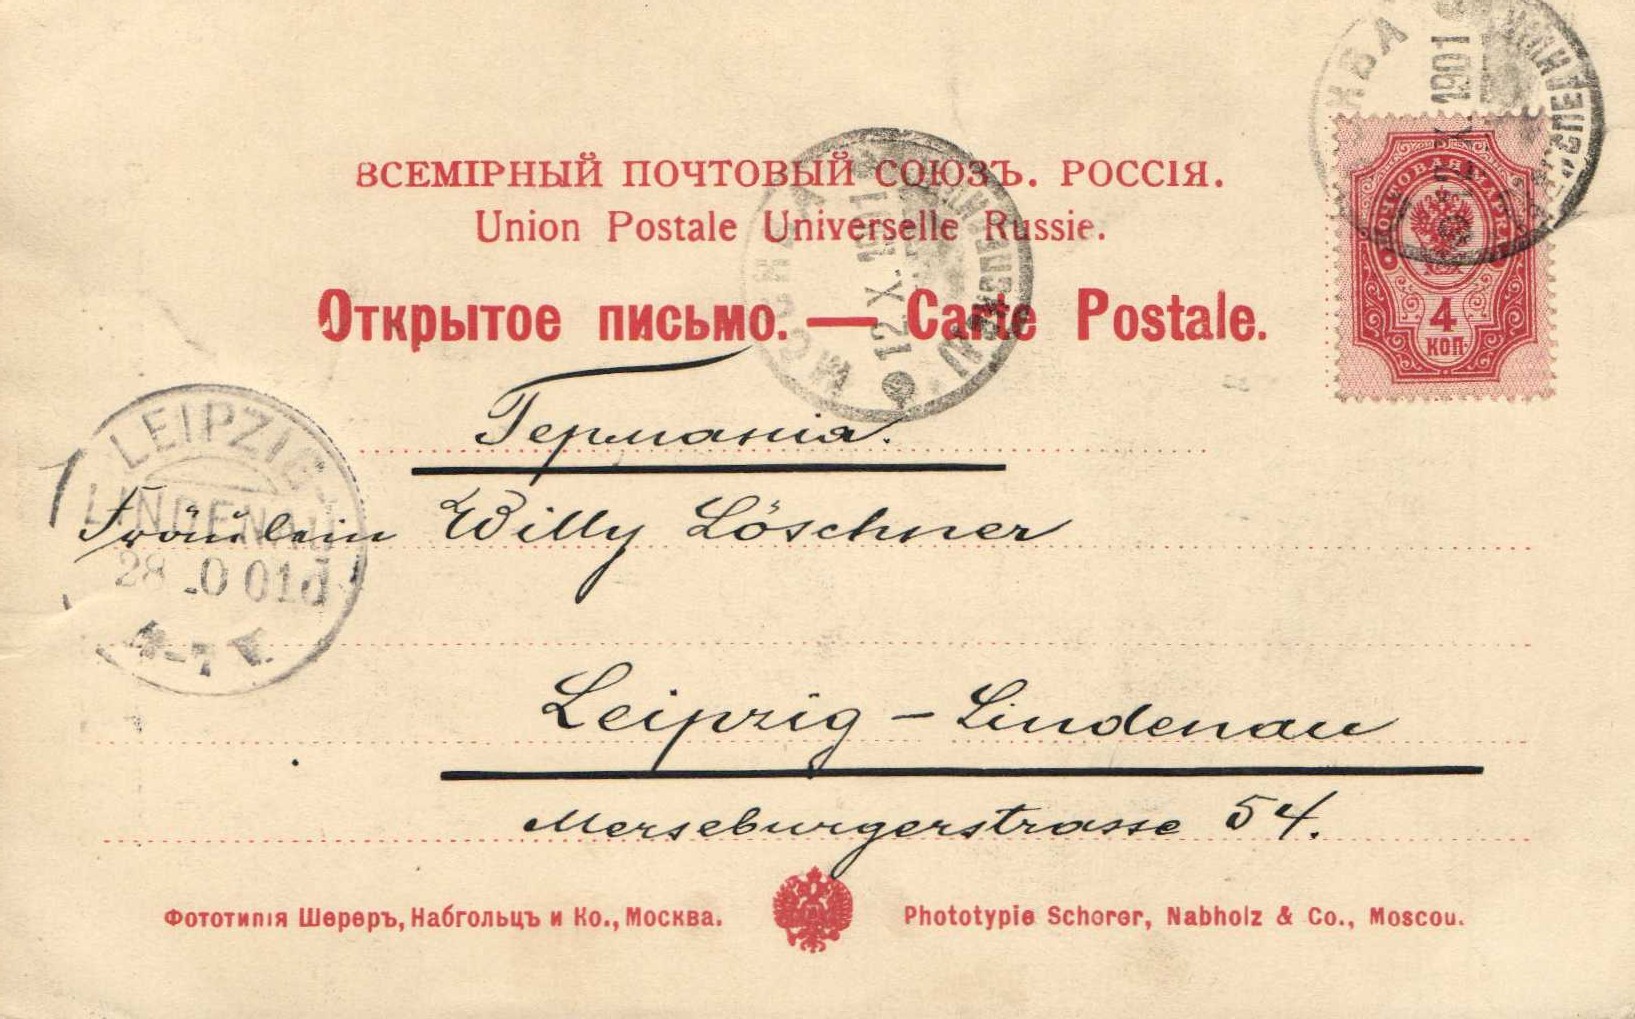 ВСЕМІРНЫЙ ПОЧТОВЫЙ СОЮЗЪ. РОССІЯ.
Union Postale Universelle Russie.
Открытое письмо. — Carte Postale.
МОСКВА
12 X 1901
1901
ПОЧТОВАЯ МАРКА
4
КОП
Германія.
LEIPZIG
LINDENAU
28 01
Fräulein Willy Löschner
Leipzig - Lindenau
Merseburgerstrasse 54.
Фототипія Шереръ, Набгольцъ и Ко., Москва.
Phototypie Scherer, Nabholz & Co., Moscou.